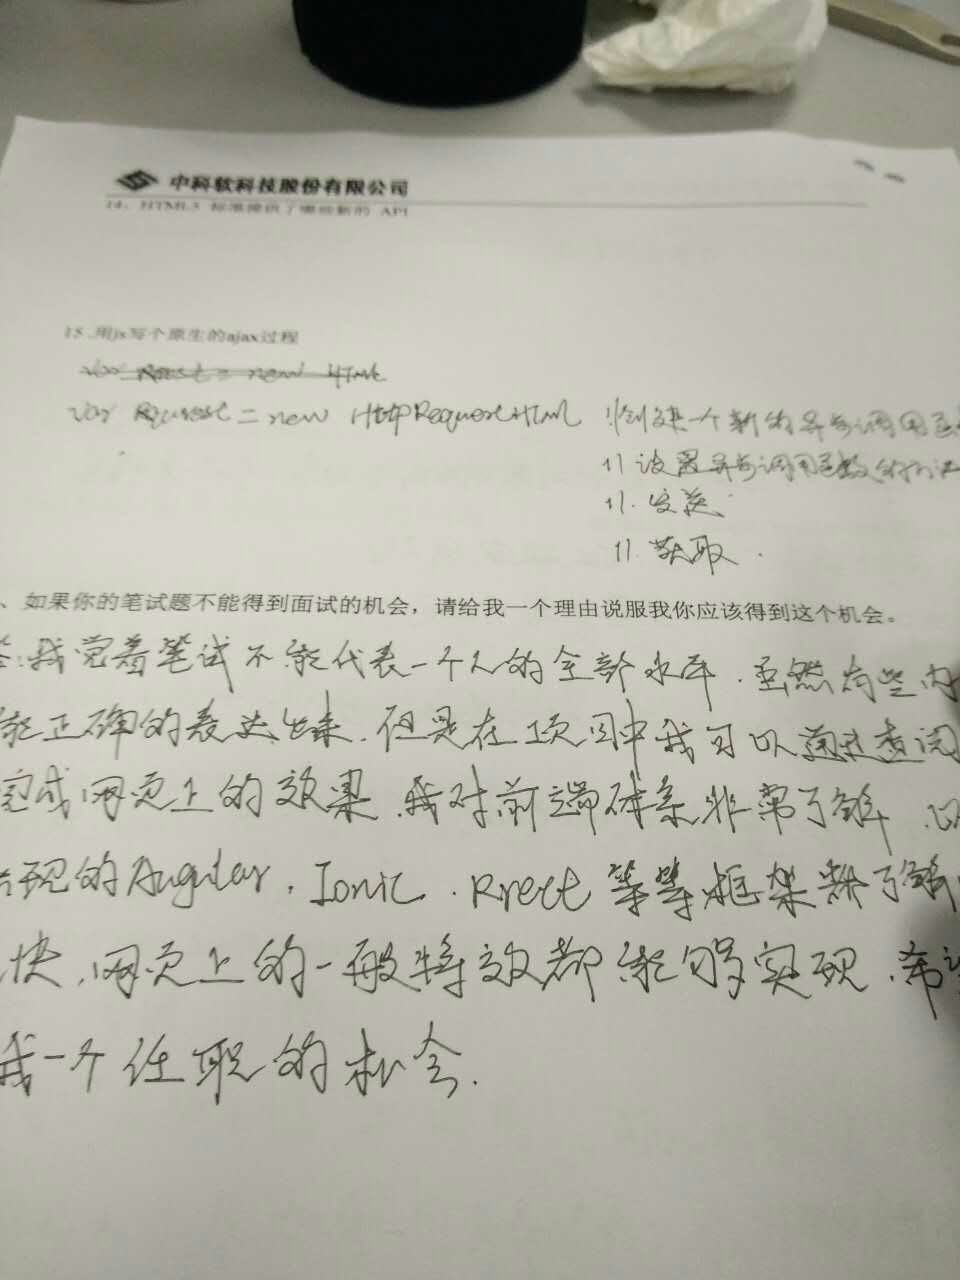 中科软科技股份有限公司
14、HTML5 标准提供了哪些新的 API
15.用js写个原生的ajax过程
var Rquest = new HTML
var Rquest = new HttpRequestHtml //创建一个新的异步调用
// 设置异步调用函数的
//. 发送
//. 获取.
、如果你的笔试题不能得到面试的机会，请给我一个理由说服我你应该得到这个机会。
答:我觉着笔试不能代表一个人的全部水平.虽然有些内
能正确的表达出来.但是在项目中我可以通过查阅
完成网页上的效果.我对前端体系非常了解.
出现的Angular.Ionic.Rrect等等框架都了解
快.网页上的一般特效都能够实现.希
我一个任职的机会.